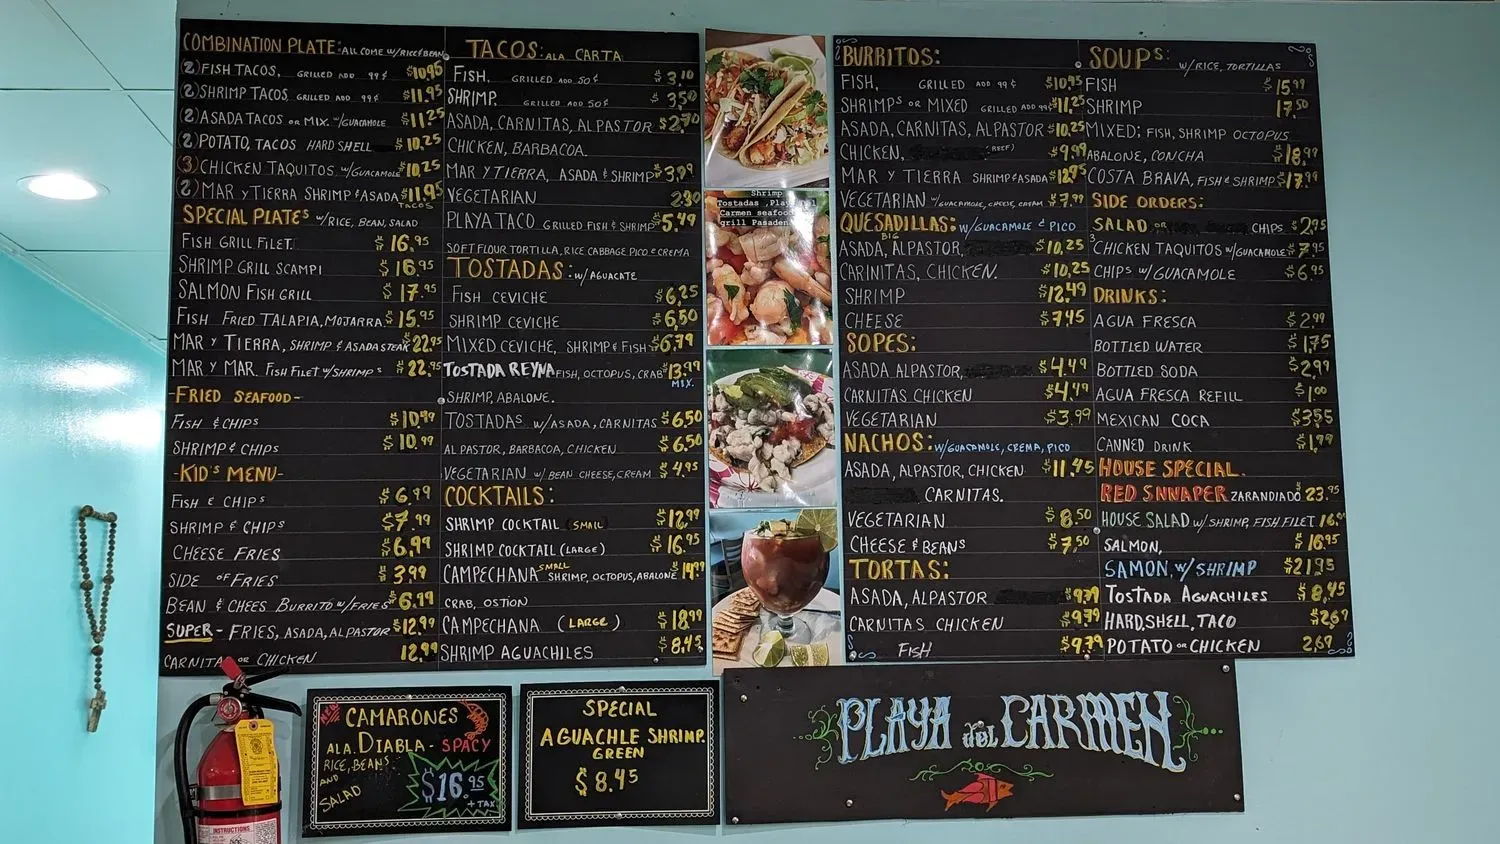 COMBINATION PLATE: ALL COME W/RICE & BEAN
(2) FISH TACOS, GRILLED ADD 99¢ $10.95
(2) SHRIMP TACOS GRILLED ADD 99¢ $11.95
(2) ASADA TACOS OR MIX. W/GUACAMOLE $11.25
(2) POTATO, TACOS HARD SHELL $10.25
(3) CHICKEN TAQUITOS W/GUACAMOLE $10.25
(2) MAR Y TIERRA SHRIMP & ASADA $11.95
TACOS
SPECIAL PLATES W/RICE, BEAN, SALAD
FISH GRILL FILET. $16.95
SHRIMP GRILL SCAMPI $16.95
SALMON FISH GRILL $17.95
FISH FRIED TALAPIA, MOJARRA $15.95
MAR Y TIERRA, SHRIMP & ASADA STEAK 22.95
MAR Y MAR. FISH FILET W/SHRIMPS $22.95
-FRIED SEAFOOD-
FISH & CHIPS $10.99
SHRIMP & CHIPS $10.99
-KID'S MENU-
FISH & CHIPS $6.99
SHRIMP & CHIPS $7.99
CHEESE FRIES $6.99
SIDE OF FRIES $3.99
BEAN & CHEES BURRITO W/FRIES $6.99
SUPER- FRIES, ASADA, AL PASTOR $12.99
CARNITAS OR CHICKEN 12.99
TACOS: ALA CARTA
FISH, GRILLED ADD 50¢ $3.10
SHRIMP, GRILLED ADD 50¢ $3.50
ASADA, CARNITAS, AL PASTOR $2.70
CHICKEN, BARBACOA.
MAR Y TIERRA, ASADA & SHRIMP $3.99
VEGETARIAN 2.30
PLAYA TACO GRILLED FISH & SHRIMP $5.49
SOFT FLOUR TORTILLA, RICE CABBAGE PICO & CREMA
TOSTADAS: W/AGUACATE
FISH CEVICHE $6.25
SHRIMP CEVICHE $6.50
MIXED CEVICHE, SHRIMP & FISH $6.79
TOSTADA REYNA FISH, OCTOPUS, CRAB $13.99
MIX.
SHRIMP, ABALONE.
TOSTADAS W/ASADA, CARNITAS $6.50
AL PASTOR, BARBACOA, CHICKEN $6.50
VEGETARIAN W/ BEAN CHEESE, CREAM $4.95
COCKTAILS:
SHRIMP COCKTAIL (SMALL) $12.99
SHRIMP COCKTAIL (LARGE) $16.95
CAMPECHANA SMALL SHRIMP, OCTOPUS, ABALONE 14.99
CRAB, OSTION
CAMPECHANA (LARGE) $18.99
SHRIMP AGUACHILES $8.45
Shrimp
Tostadas ,Playa del
Carmen seafood
grill Pasadena
BURRITOS:
FISH, GRILLED ADD 99¢ $10.95
SHRIMPS OR MIXED GRILLED ADD 99¢ $11.25
ASADA, CARNITAS, AL PASTOR $10.25
CHICKEN, (BEEF) $9.99
MAR Y TIERRA SHRIMP & ASADA $12.95
VEGETARIAN W/GUACAMOLE, CHEESE, CREAM $7.99
QUESADILLAS: W/GUACAMOLE & PICO
BIG
ASADA, AL PASTOR, $10.25
CARINITAS, CHICKEN. $10.25
SHRIMP $12.49
CHEESE $7.45
SOPES:
ASADA AL PASTOR, $4.49
CARNITAS CHICKEN $4.49
VEGETARIAN $3.99
NACHOS: W/GUACAMOLE, CREMA, PICO
ASADA, AL PASTOR, CHICKEN $11.45
CARNITAS.
VEGETARIAN $8.50
CHEESE & BEANS $7.50
TORTAS:
ASADA, AL PASTOR $9.79
CARNITAS CHICKEN $9.79
FISH $9.79
SOUPS: W/RICE, TORTILLAS
FISH $15.99
SHRIMP 17.50
MIXED; FISH, SHRIMP OCTOPUS
ABALONE, CONCHA $18.99
COSTA BRAVA, FISH & SHRIMP $17.99
SIDE ORDERS:
SALAD OR CHIPS $2.95
3 CHICKEN TAQUITOS W/GUACAMOLE $7.95
CHIPS W/GUACAMOLE $6.95
DRINKS:
AGUA FRESCA $2.99
BOTTLED WATER $1.75
BOTTLED SODA $2.99
AGUA FRESCA REFILL $1.00
MEXICAN COCA $3.55
CANNED DRINK $1.99
HOUSE SPECIAL.
RED SNNAPER ZARANDIADO $23.95
HOUSE SALAD W/SHRIMP, FISH FILET 16.
SALMON, $16.95
SAMON, W/SHRIMP $21.95
TOSTADA AGUACHILES $8.45
HARD, SHELL, TACO $2.69
POTATO OR CHICKEN 2.69
CAMARONES
ALA. DIABLA- SPACY
RICE, BEANS
AND
SALAD
$16.95
+ TAX
SPECIAL
AGUACHLE SHRIMP.
GREEN
$8.45
PLAYA del CARMEN
INSTRUCTIONS